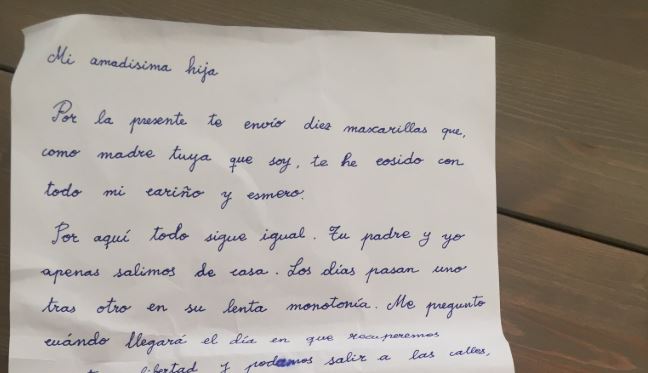 Mi amadisima hija
Por la presente te envío diez mascarillas que,
como madre tuya que soy, te he cosido con
todo mi cariño y esmero.
Por aquí todo sigue igual. Tu padre y yo
apenas salimos de casa. Los días pasan uno
tras otro en su lenta monotonía. Me pregunto
cuándo llegará el día en que recuperemos
libertad y podamos salir a las calles,